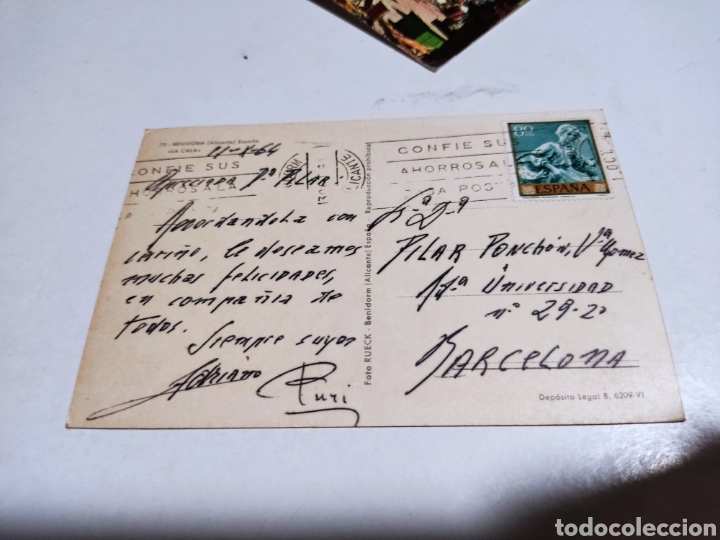 70 - BENIDORM (Alicante) España
«LA CALA»
11-X-64
CONFIE SUS
AHORROS A LA
Pilar:
Acordandola con
cariño, le deseamos
muchas felicidades,
en compañia de
todos.
Siempre suyos
Adriano
Puri
Foto RUECK - Benidorm (Alicante) España - Reproducción prohibida
ALICANTE
CONFIE SUS
AHORROS A L
CA POST
OCT
80
ESPAÑA
Sª Dª
PILAR PONCHÓN, Vª Gomez
Universidad
nº 29-2º
BARCELONA
Depósito Legal B. 6209-VI
todocoleccion